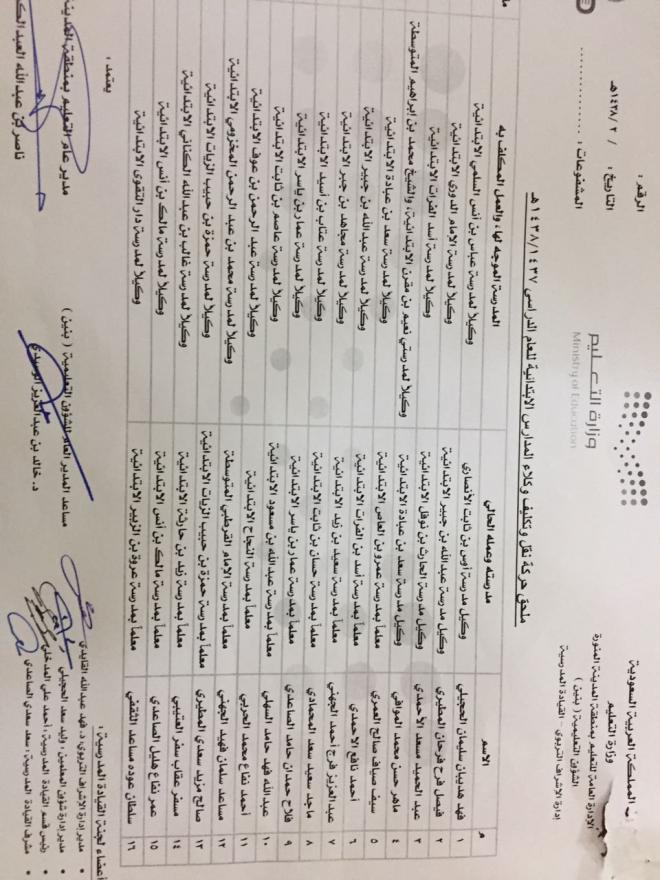 المملكة العربية السعودية
وزارة التعليم
الإدارة العامة للتعليم بمنطقة المدينة المنورة
الشؤون التعليمية ( بنين )
إدارة الاشراف التربوي - القيادة المدرسية
وزارة التعليم
Ministry of Education
الرقم :
التاريخ : / ٢ / ١٤٣٨هـ
المشفوعات :
ملحق حركة نقل وتكليف وكلاء المدارس الابتدائية للعام الدراسي ١٤٣٨/١٤٣٧هـ
م الاسم مدرسته وعمله الحالي المدرسة الموجه لها، والعمل المكلف به
١ فهد هديبان سليمان الحجيلي وكيل مدرسة أوس بن ثابت الأنصاري وكيلاً لمدرسة عباس بن أنس السلمي الابتدائية
٢ فيصل فرح فرحان المطيري وكيل مدرسة عبدالله بن جبير الابتدائية وكيلاً لمدرسة الإمام الدوري الابتدائية
٣ عبد الحميد مسعد الأحمدي وكيل مدرسة الحارث بن نوفل الابتدائية وكيلاً لمدرسة أسد الفرات الابتدائية
٤ ماهر حسن محمد الموافي وكيل مدرسة سعد بن عبادة الابتدائية وكيلاً لمدرستي نعيم بن مقرن الابتدائية، والشيخ محمد بن إبراهيم المتوسطة
٥ سيف صياف صالح العمري معلماً بمدرسة عمرو بن العاص الابتدائية وكيلاً لمدرسة سعد بن عبادة الابتدائية
٦ أحمد نافع الأحمدي معلماً بمدرسة أسد بن الفرات الابتدائية وكيلاً لمدرسة عبدالله بن جبير الابتدائية
٧ عبد العزيز فرح أحمد الجهني معلماً بمدرسة سعيد بن زيد الابتدائية وكيلاً لمدرسة مجاهد بن جبر الابتدائية
٨ ماجد سعيد سعد المحمادي معلماً بمدرسة حسان بن ثابت الابتدائية وكيلاً لمدرسة عتاب بن أسيد الابتدائية
٩ فلاح حمدان حامد الصاعدي معلماً بمدرسة عمار بن ياسر الابتدائية وكيلاً لمدرسة عمار بن ياسر الابتدائية
١٠ عبدالله فهد حامد السهلي معلماً بمدرسة عبدالله بن مسعود الابتدائية وكيلاً لمدرسة عاصم بن ثابت الابتدائية
١١ أحمدي نفاع محمد الحربي معلماً بمدرسة النجاح الابتدائية وكيلاً لمدرسة عبد الرحمن بن عوف الابتدائية
١٢ مساعد سلمان فهيد الجهني معلماً بمدرسة الإمام القرطبي المتوسطة وكيلاً لمدرسة محمد بن عبد الرحمن المخزومي الابتدائية
١٣ صالح مزيد سعدي المطيري معلماً بمدرسة حمزة بن حبيب الزيات الابتدائية وكيلاً لمدرسة حمزة بن حبيب الزيات الابتدائية
١٤ مسفر عقاب سفر العتيبي معلماً بمدرسة زيد بن حارثة الابتدائية وكيلاً لمدرسة غالب بن عبدالله الكناني الابتدائية
١٥ عمر نفاع هليل الصاعدي معلماً بمدرسة مالك بن أنس الابتدائية وكيلاً لمدرسة مالك بن أنس الابتدائية
١٦ سلطان عوده مساعد الثقفي معلماً بمدرسة عروة بن الزبير الابتدائية وكيلاً لمدرسة دار التقوى الابتدائية
أعضاء لجنة القيادة المدرسية :
• مدير إدارة الاشراف التربوي د. فهد عبدالله القايدي
• مدير إدارة شؤون المعلمين : وليد سعد الحجيلي
• رئيس قسم القيادة المدرسية : أحمد علي المدخلي
• مشرف القيادة المدرسية : سعد سعدي الصاعدي
مساعد المدير العام للشؤون التعليمية ( بنين )
د. خالد بن عبدالعزيز الوسيدي
يعتمد :
مدير عام التعليم بمنطقة المدينة
ناصر بن عبدالله العبد الك